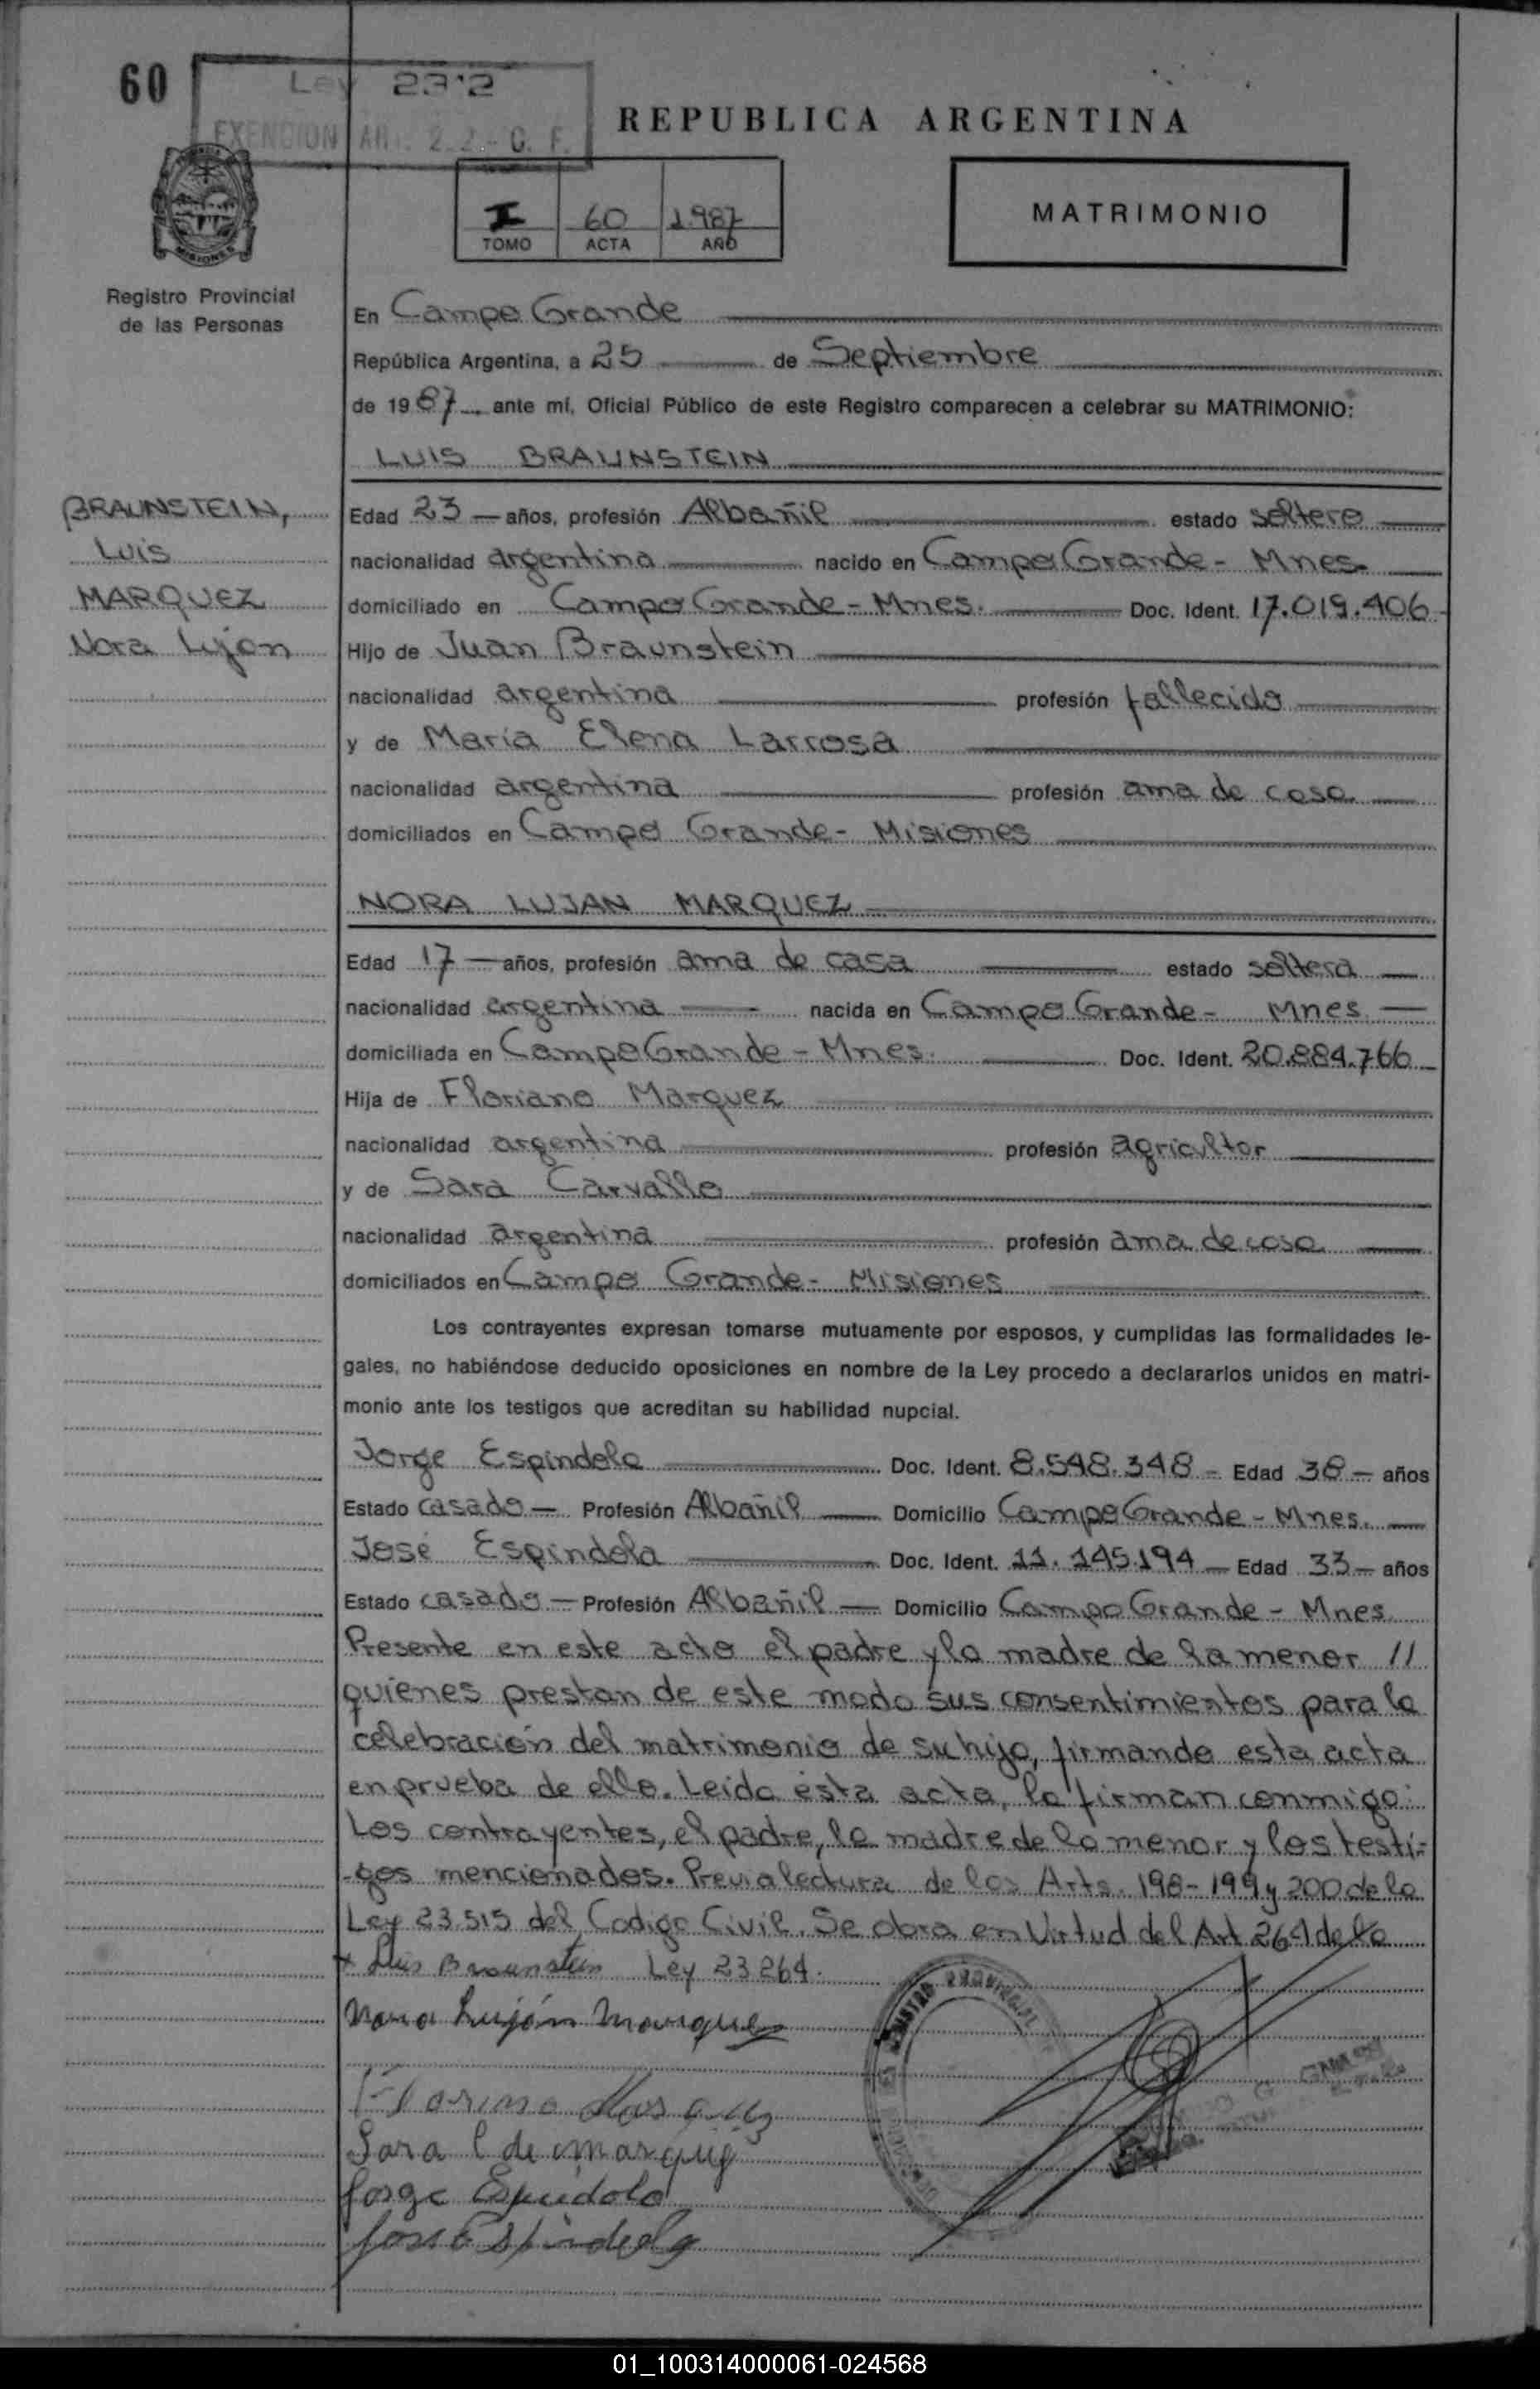 60
Ley 2372
EXENCION Art. 2.2.- C. F.
REPUBLICA ARGENTINA
I 60 1987
TOMO ACTA AÑO
MATRIMONIO
MISIONES
Registro Provincial
de las Personas
En Campo Grande
República Argentina, a 25 de Septiembre
de 1987 ante mí, Oficial Público de este Registro comparecen a celebrar su MATRIMONIO:
LUIS BRAUNSTEIN
BRAUNSTEIN,
Luis
MARQUEZ
Nora Lujan
Edad 23 años, profesión Albañil estado soltero
nacionalidad argentina nacido en Campo Grande - Mnes.
domiciliado en Campo Grande - Mnes. Doc. Ident. 17.019.406
Hijo de Juan Braunstein
nacionalidad argentina profesión fallecido
y de María Elena Larrosa
nacionalidad argentina profesión ama de casa
domiciliados en Campo Grande - Misiones
NORA LUJAN MARQUEZ
Edad 17 años, profesión ama de casa estado soltera
nacionalidad argentina nacida en Campo Grande - Mnes
domiciliada en Campo Grande - Mnes. Doc. Ident. 20.884.766
Hija de Floriano Marquez
nacionalidad argentina profesión agricultor
y de Sara Carvallo
nacionalidad argentina profesión ama de casa
domiciliados en Campo Grande - Misiones
Los contrayentes expresan tomarse mutuamente por esposos, y cumplidas las formalidades le-
gales, no habiéndose deducido oposiciones en nombre de la Ley procedo a declararlos unidos en matri-
monio ante los testigos que acreditan su habilidad nupcial.
Jorge Espindola Doc. Ident. 8.548.348 - Edad 38 - años
Estado casado - Profesión Albañil Domicilio Campo Grande - Mnes.
José Espindola Doc. Ident. 11.145.194 - Edad 33 - años
Estado casado - Profesión Albañil Domicilio Campo Grande - Mnes
Presente en este acto el padre y la madre de la menor //
quienes prestan de este modo sus consentimientos para la
celebración del matrimonio de su hija, firmando esta acta
en prueba de ello. Leida ésta acta, la firman conmigo:
Los contrayentes, el padre, la madre de la menor y los testi-
-gos mencionados. Previa lectura de los Arts. 198-199 y 200 de la
Ley 23.515 del Codigo Civil. Se obra en Virtud del Art 264 de la
+ Luis Braunstein Ley 23264.
Nora Luján Marquez
Floriano Marquez
Sara C de Marquez
Jorge Espindola
José Espindola
01_100314000061-024568